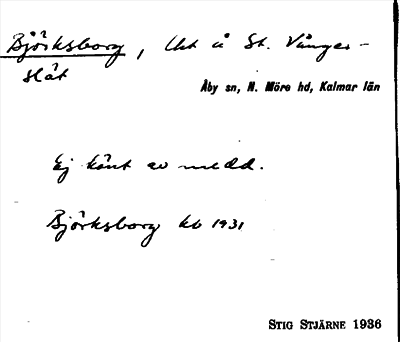 Björksborg, lht å St. Vånger-
slät
Åby sn, N. Möre hd, Kalmar län
Ej känt av medd.
Björksborg kb 1931
STIG STJÄRNE 1936